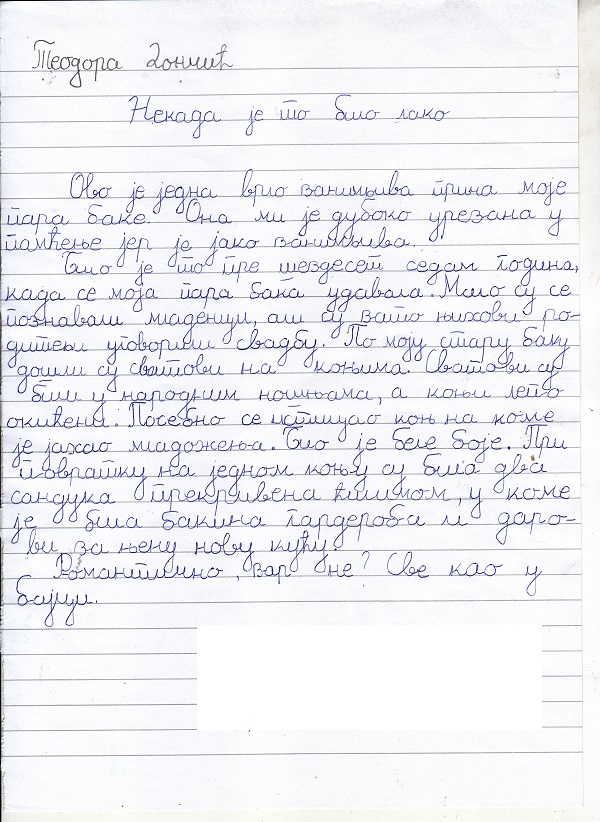 Теодора Дончић
Некада је то било лако
Ово је једна врло занимљива прича моје
пара баке. Она ми је дубоко урезана у
памћење јер је јако занимљива.
Било је то пре шездесет седам година,
када се моја пара бака удавала. Мало су се
познавали младенци, али су зато њихови ро-
дитељи уговорили свадбу. По моју стару баку
дошли су сватови на коњима. Сватови су
били у народним ношњама, а коњи лепо
окићени. Посебно се истицао коњ на коме
је јахао младожења. Био је беле боје. При
повратку на једном коњу су била два
сандука прекривена ћилимом, у коме
је била бакина гардероба и даро-
ви за њену нову кућу.
Романтично, зар не? Све као у
бајци.